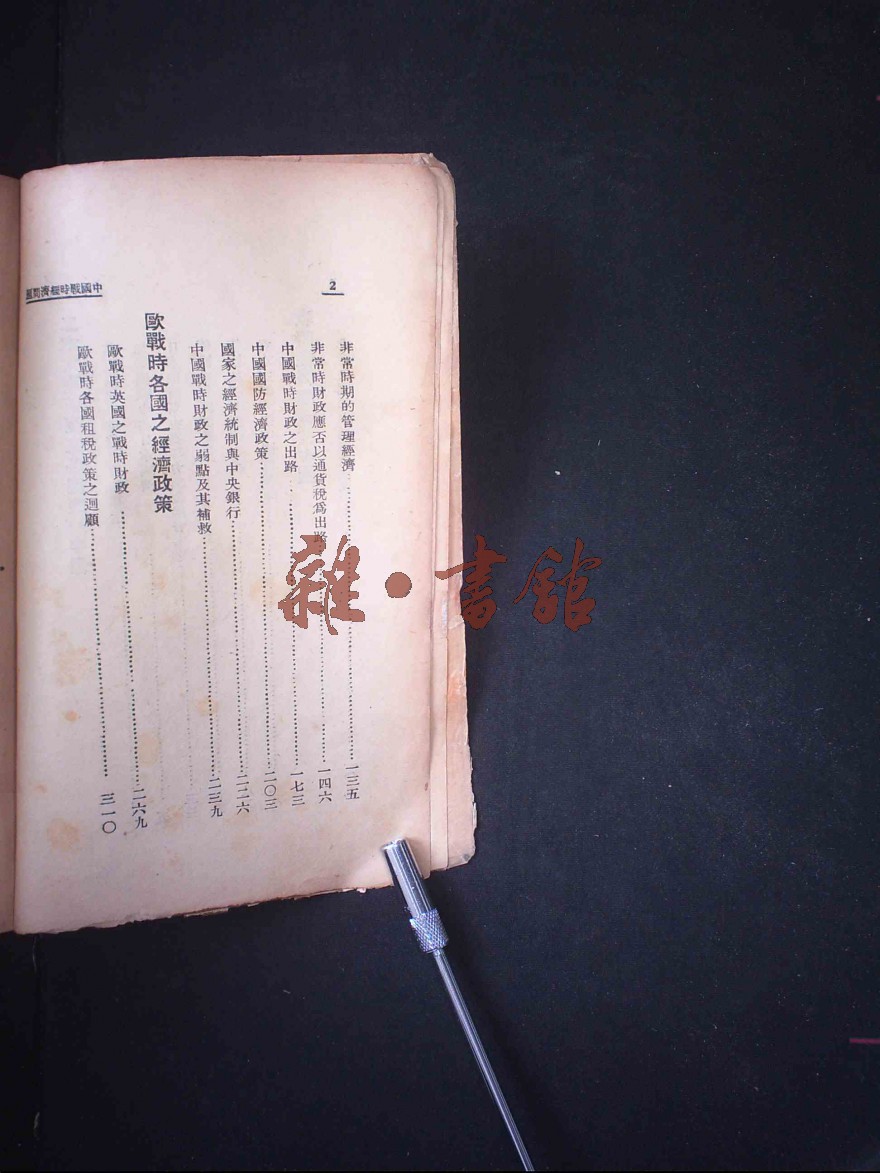 2
中國戰時經濟問題
非常時期的管理經濟……一三五
非常時財政應否以通貨稅爲出路……一四六
中國戰時財政之出路……一七三
中國國防經濟政策……二〇三
國家之經濟統制與中央銀行……二二六
中國戰時財政之弱點及其補救……二三九
歐戰時各國之經濟政策
歐戰時英國之戰時財政……二六九
歐戰時各國租稅政策之迴顧……三一〇
雜·書館